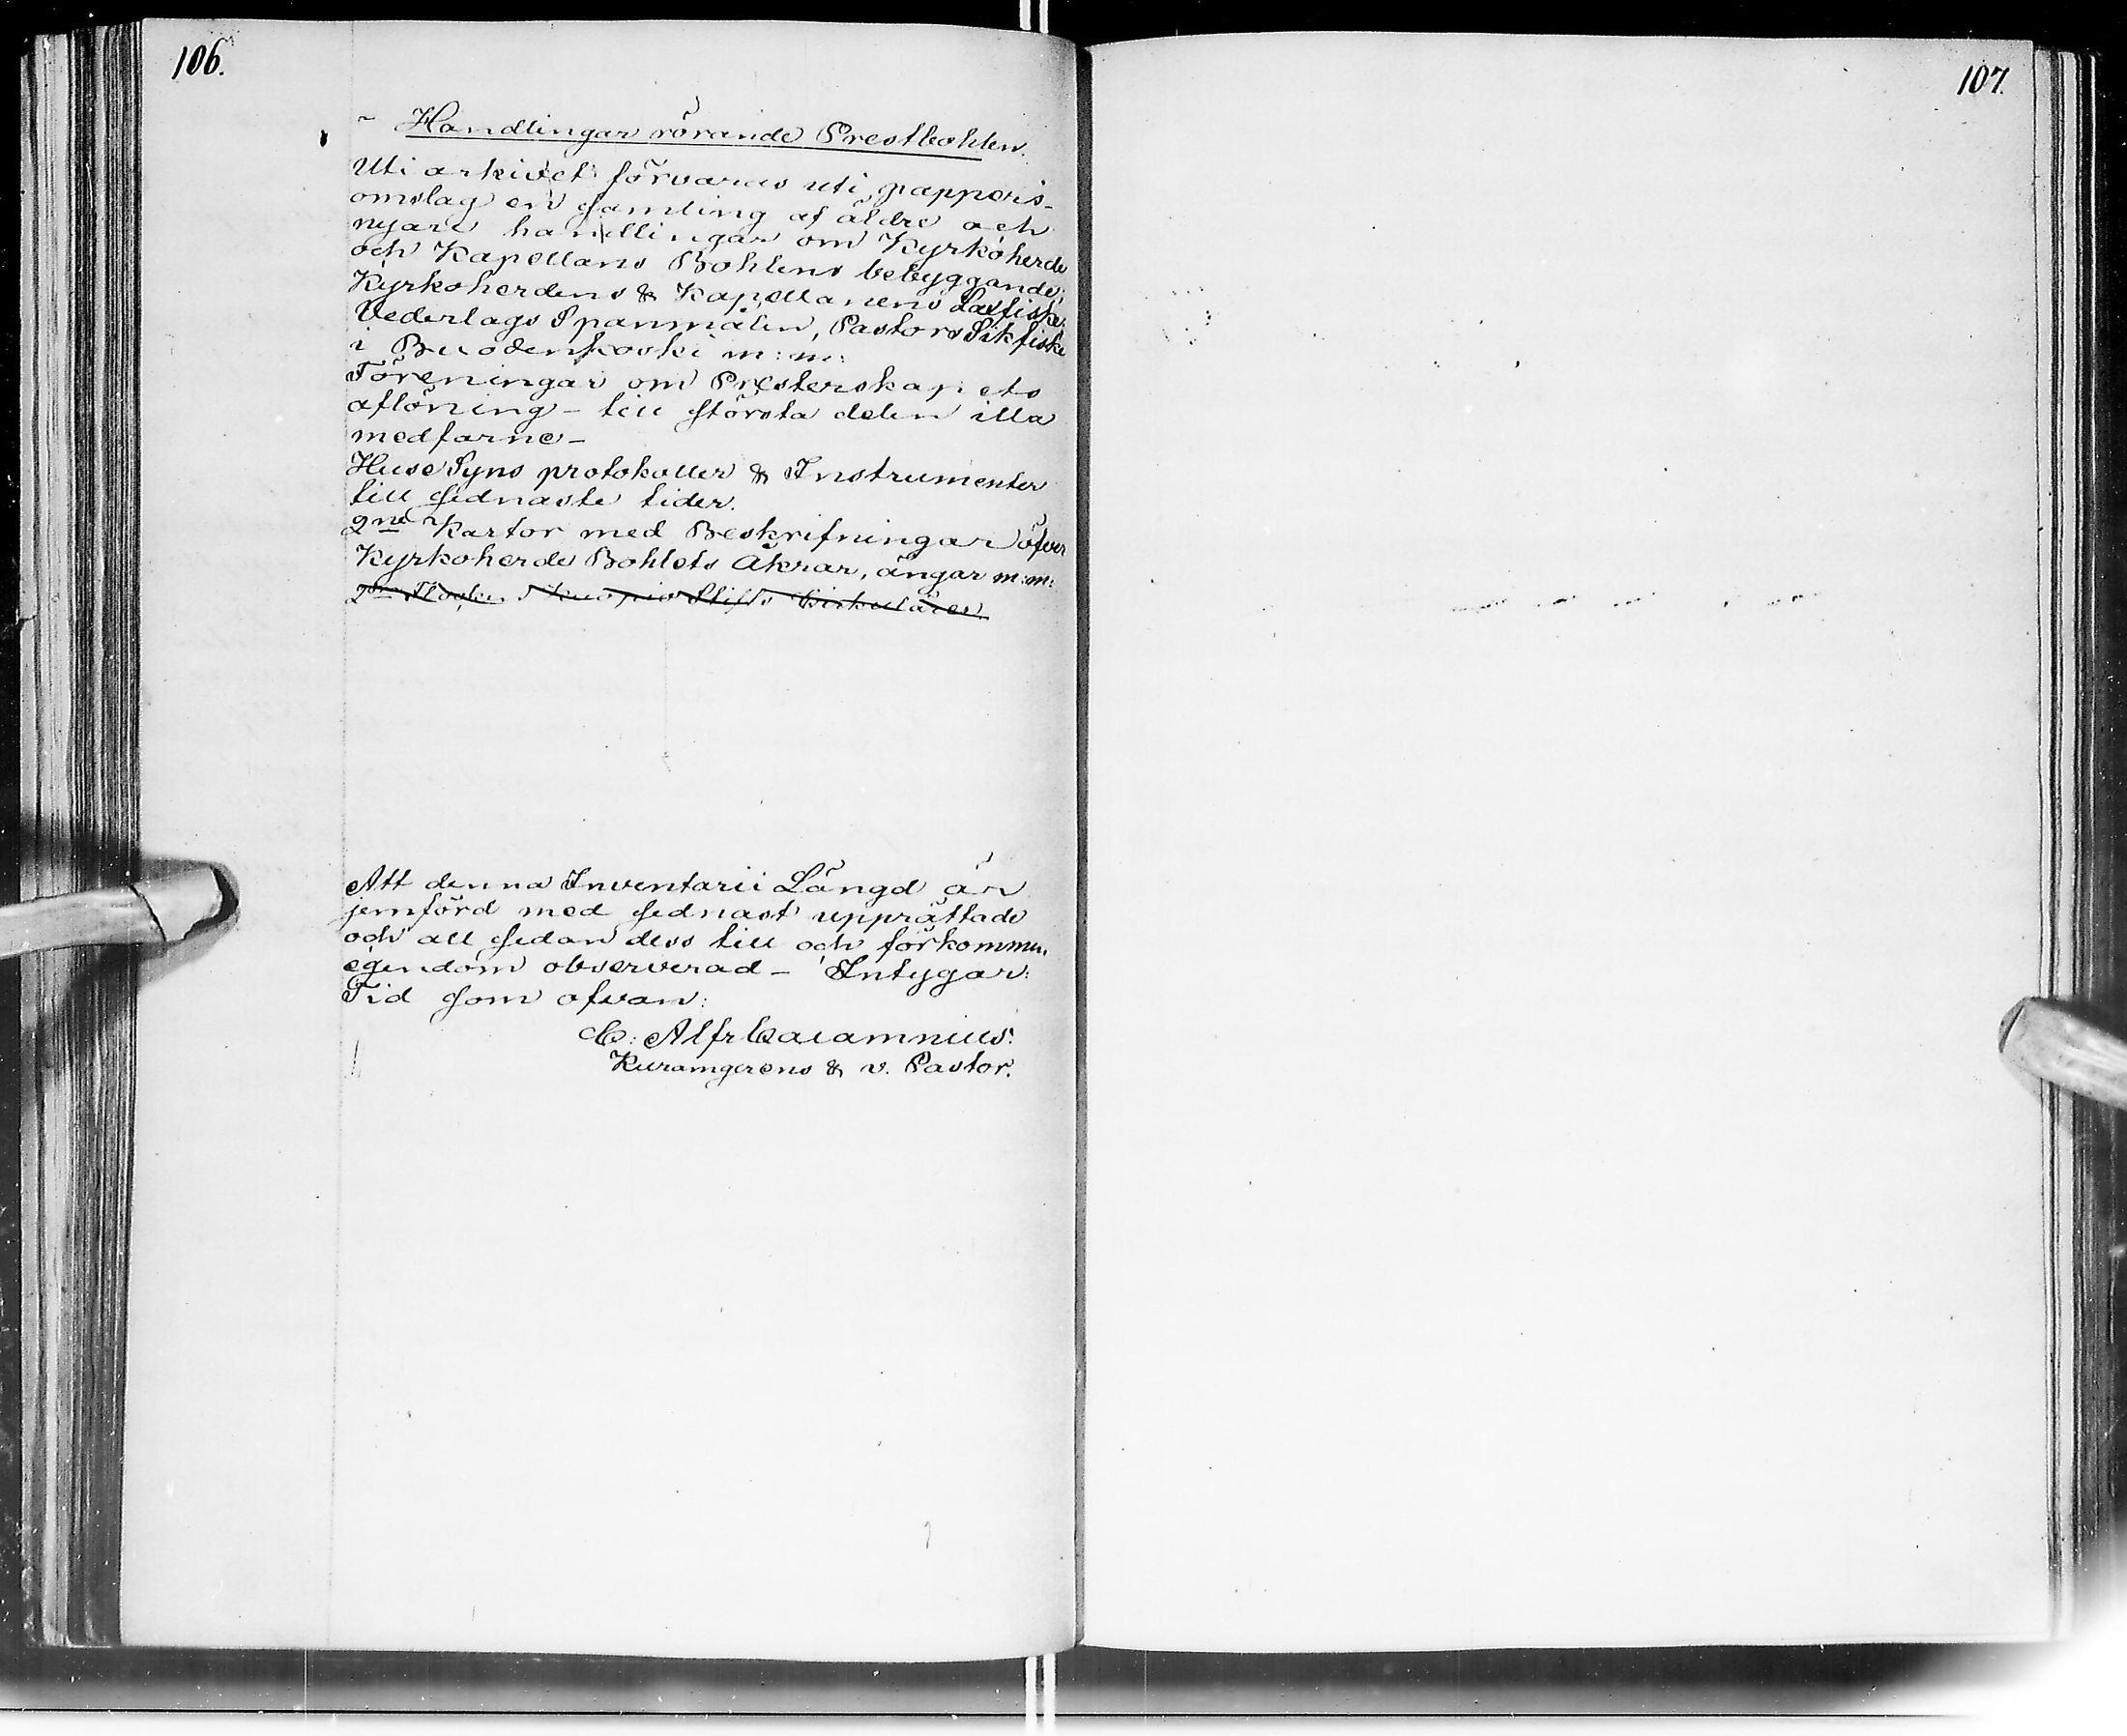 106.
107.
Handlingar rörande Prestbohlen.
Uti arkivet förvaras uti pappers-
omslag en samling af äldre och
nyare handlingar om Kyrkoherde
och Kapellans Bohlens bebyggande;
Kyrkoherdens & Kapellanens Laxfiske.
Vederlags Spanmålen, Pastors Sikfiske
i m:m:
Föreningar om Presterskapets
aflöning - till största delen illa
medfarne -
Huse Syns protokoller & Instrumenter
till sednaste tider.
2ne Kartor med Beskrifningar öfver
Kyrkoherde Bohlets Åkrar, ängar m:m:
2ne Kuopio Stifts Cirkulärer.
Att denna Inventarii Längd är
jemförd med sednast upprättade
och all sedan dess till och förkommen
egendom observerad - Intygar:
Tid som ofvan:
C: Alfr Calamnius.
Kuramgerens & v. Pastor.